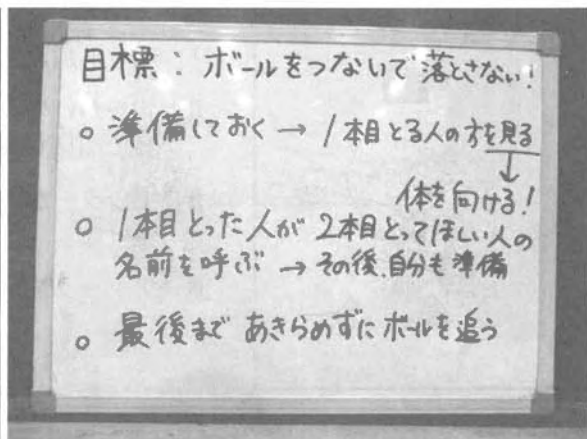 目標：ボールをつないで落とさない！
○準備しておく→1本目とる人の方を見る
↓
体を向ける！
○1本目とった人が2本目とってほしい人の
名前を呼ぶ→その後、自分も準備
○最後まであきらめずにボールを追う